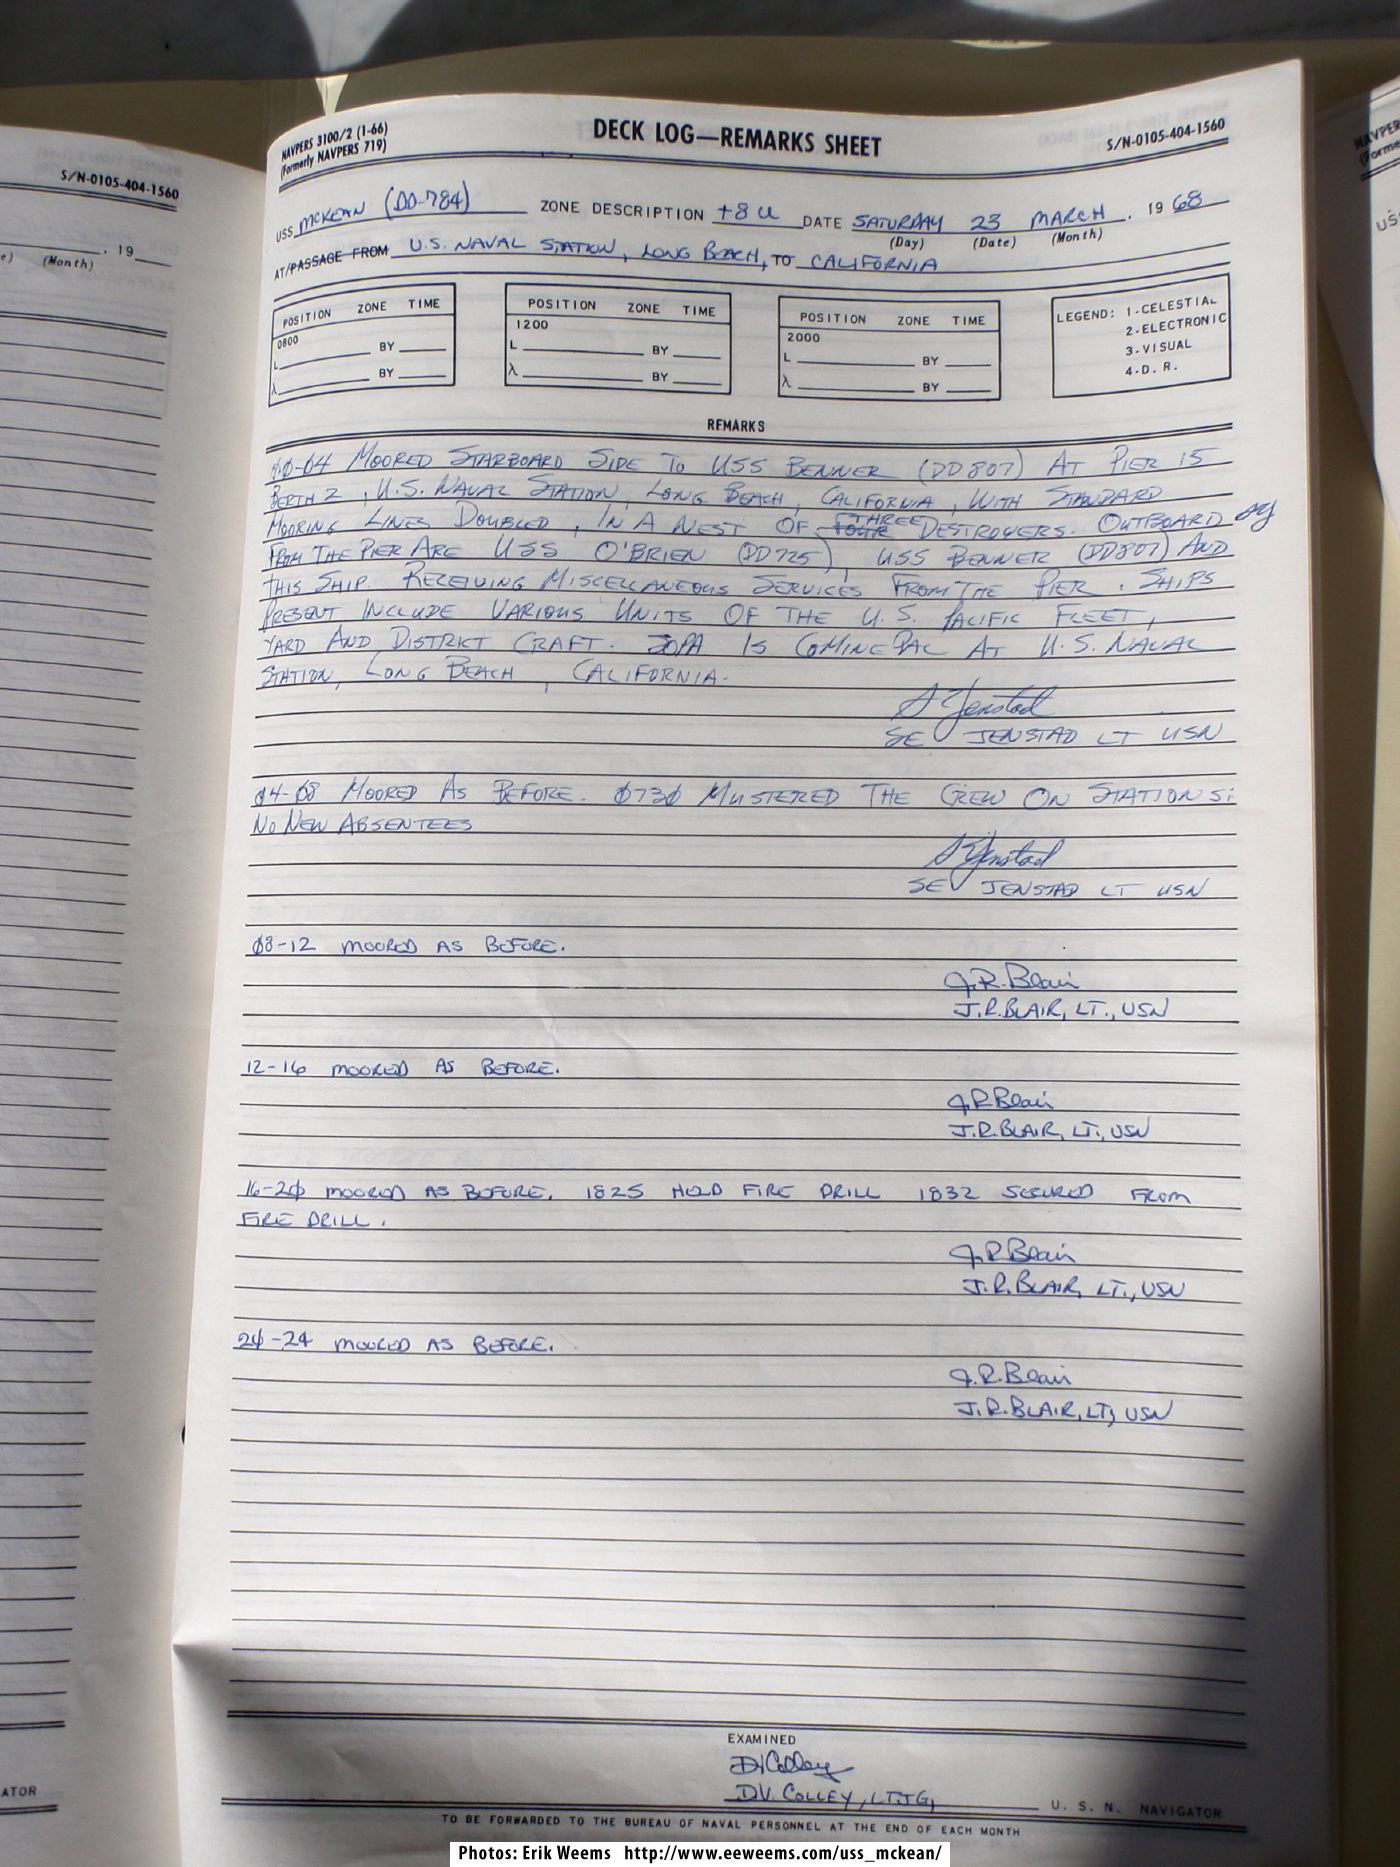 S/N-0105-404-1560
(Month)
. 19
ATOR
NAVPERS 3100/2 (1-66)
(Formerly NAVPERS 719)
DECK LOG—REMARKS SHEET
S/N-0105-404-1560
USS MCKEAN (DD-784) ZONE DESCRIPTION +8 U DATE SATURDAY 23 MARCH . 19 68
(Day) (Date) (Month)
AT/PASSAGE FROM U.S. NAVAL STATION, LONG BEACH, TO CALIFORNIA
POSITION ZONE TIME
0800
L BY
λ BY
POSITION ZONE TIME
1200
L BY
λ BY
POSITION ZONE TIME
2000
L BY
λ BY
LEGEND: 1-CELESTIAL
2-ELECTRONIC
3-VISUAL
4-D. R.
REMARKS
00-04 MOORED STARBOARD SIDE TO USS BENNER (DD807) AT PIER 15
BERTH 2, U.S. NAVAL STATION, LONG BEACH, CALIFORNIA, WITH STANDARD
MOORING LINES DOUBLED, IN A NEST OF FOUR THREE DESTROYERS. OUTBOARD
FROM THE PIER ARE USS O'BRIEN (DD725), USS BENNER (DD807) AND
THIS SHIP. RECEIVING MISCELLANEOUS SERVICES FROM THE PIER. SHIPS
PRESENT INCLUDE VARIOUS UNITS OF THE U.S. PACIFIC FLEET,
YARD AND DISTRICT CRAFT. SOPA IS COMINEPAC AT U.S. NAVAL
STATION, LONG BEACH, CALIFORNIA.
S Jenstad
SE JENSTAD LT USN
04-08 MOORED AS BEFORE. 0730 MUSTERED THE CREW ON STATIONS:
NO NEW ABSENTEES
S Jenstad
SE JENSTAD LT USN
08-12 MOORED AS BEFORE.
J.R. Blair
J.R. BLAIR, LT., USN
12-16 MOORED AS BEFORE.
J.R. Blair
J.R. BLAIR, LT., USN
16-20 MOORED AS BEFORE. 1825 HELD FIRE DRILL 1832 SECURED FROM
FIRE DRILL.
J.R. Blair
J.R. BLAIR, LT., USN
20-24 MOORED AS BEFORE.
J.R. Blair
J.R. BLAIR, LT, USN
EXAMINED
DV Colley
D.V. COLLEY, LTJG, U. S. N. NAVIGATOR
TO BE FORWARDED TO THE BUREAU OF NAVAL PERSONNEL AT THE END OF EACH MONTH
Photos: Erik Weems http://www.eeweems.com/uss_mckean/